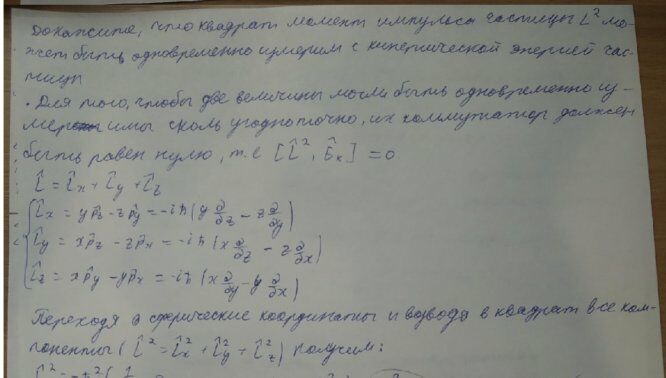 Докажите, что квадрат момент импульса частицы L² мо-
жет быть одновременно измерим с кинетической энергией час-
тицы
• Для того, чтобы две величины могли быть одновременно из-
меримы сколь угодно точно, их коммутатор должен
быть равен нулю, т.е [L̂², Êₖ] = 0
L̂ = L̂x + L̂y + L̂z
L̂x = yp̂z - zp̂y = -iħ(y ∂/∂z - z ∂/∂y)
L̂y = xp̂z - zp̂x = -iħ(x ∂/∂z - z ∂/∂x)
L̂z = xp̂y - yp̂x = -iħ(x ∂/∂y - y ∂/∂x)
Переходя в сферические координаты и возводя в квадрат все ком-
поненты (L̂² = L̂²x + L̂²y + L̂²z) получим: